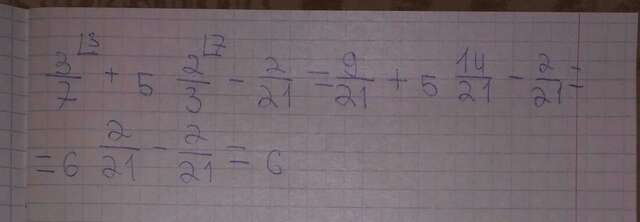 3/7 ⌊3 + 5 2/3 ⌊7 - 2/21 = 9/21 + 5 14/21 - 2/21 =
= 6 2/21 - 2/21 = 6